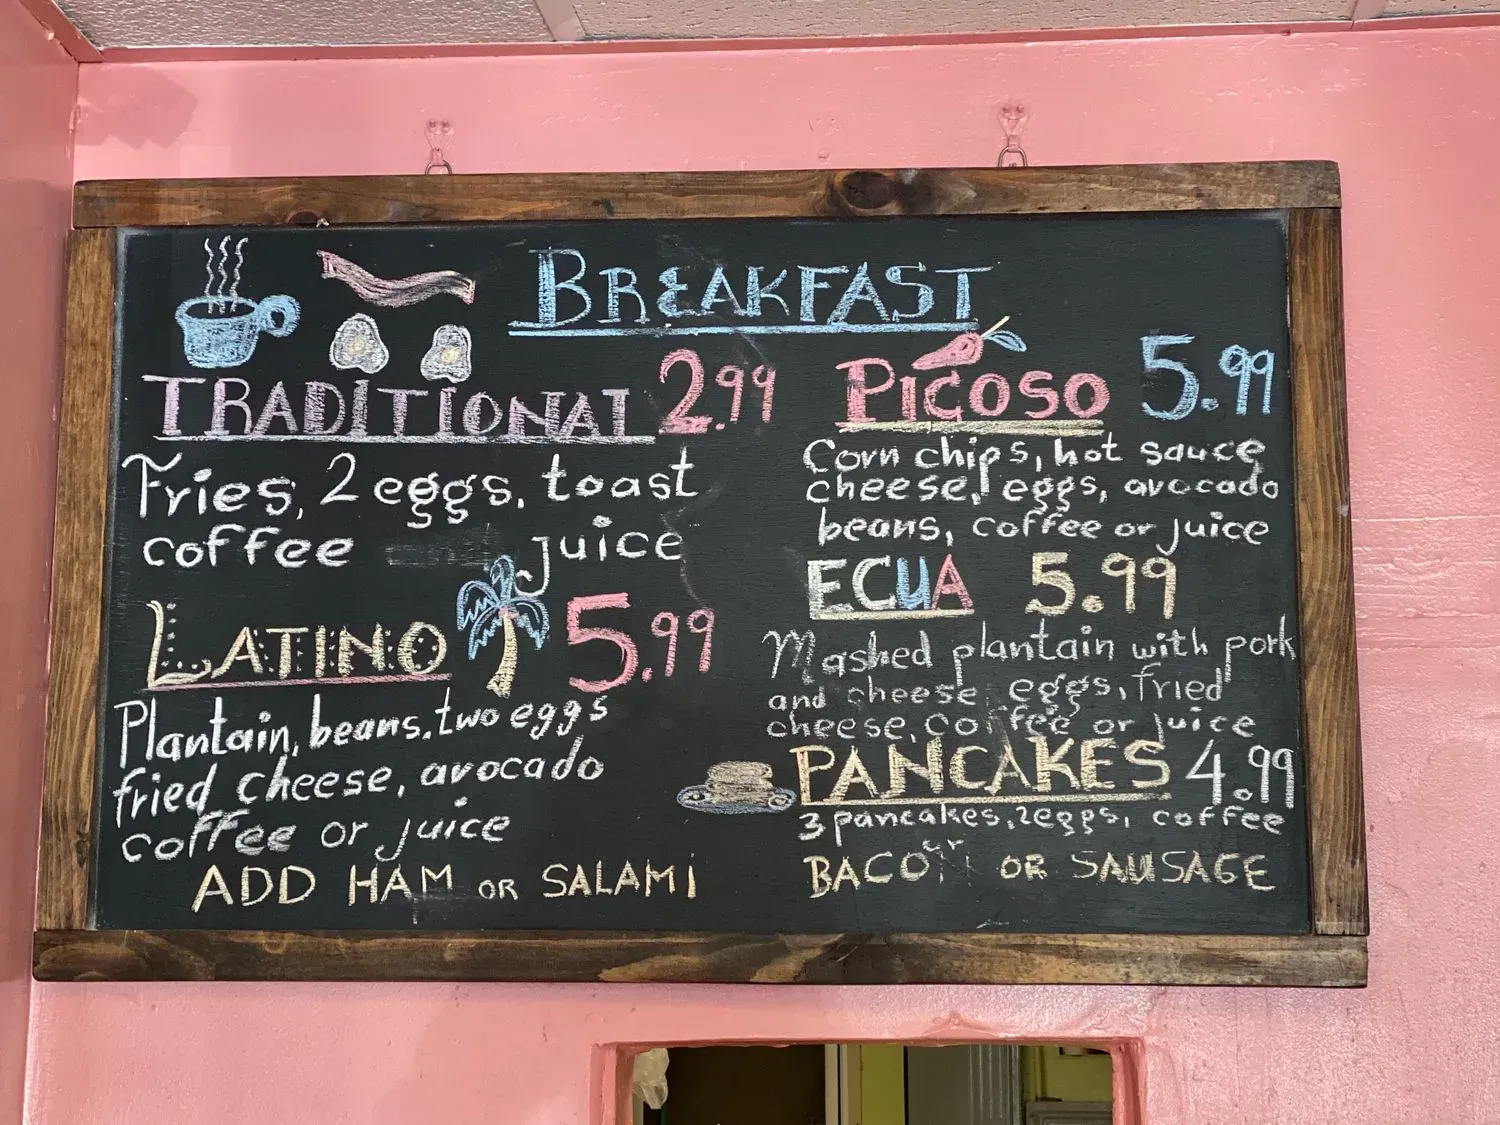 BREAKFAST
TRADITIONAL 2.99
Fries, 2 eggs, toast
coffee juice
LATINO 5.99
Plantain, beans, two eggs
fried cheese, avocado
coffee or juice
ADD HAM OR SALAMI
PICOSO 5.99
Corn chips, hot sauce
cheese, eggs, avocado
beans, coffee or juice
ECUA 5.99
Mashed plantain with pork
and cheese, eggs, fried
cheese, coffee or juice
PANCAKES 4.99
3 pancakes, 2 eggs, coffee
or
BACON OR SAUSAGE